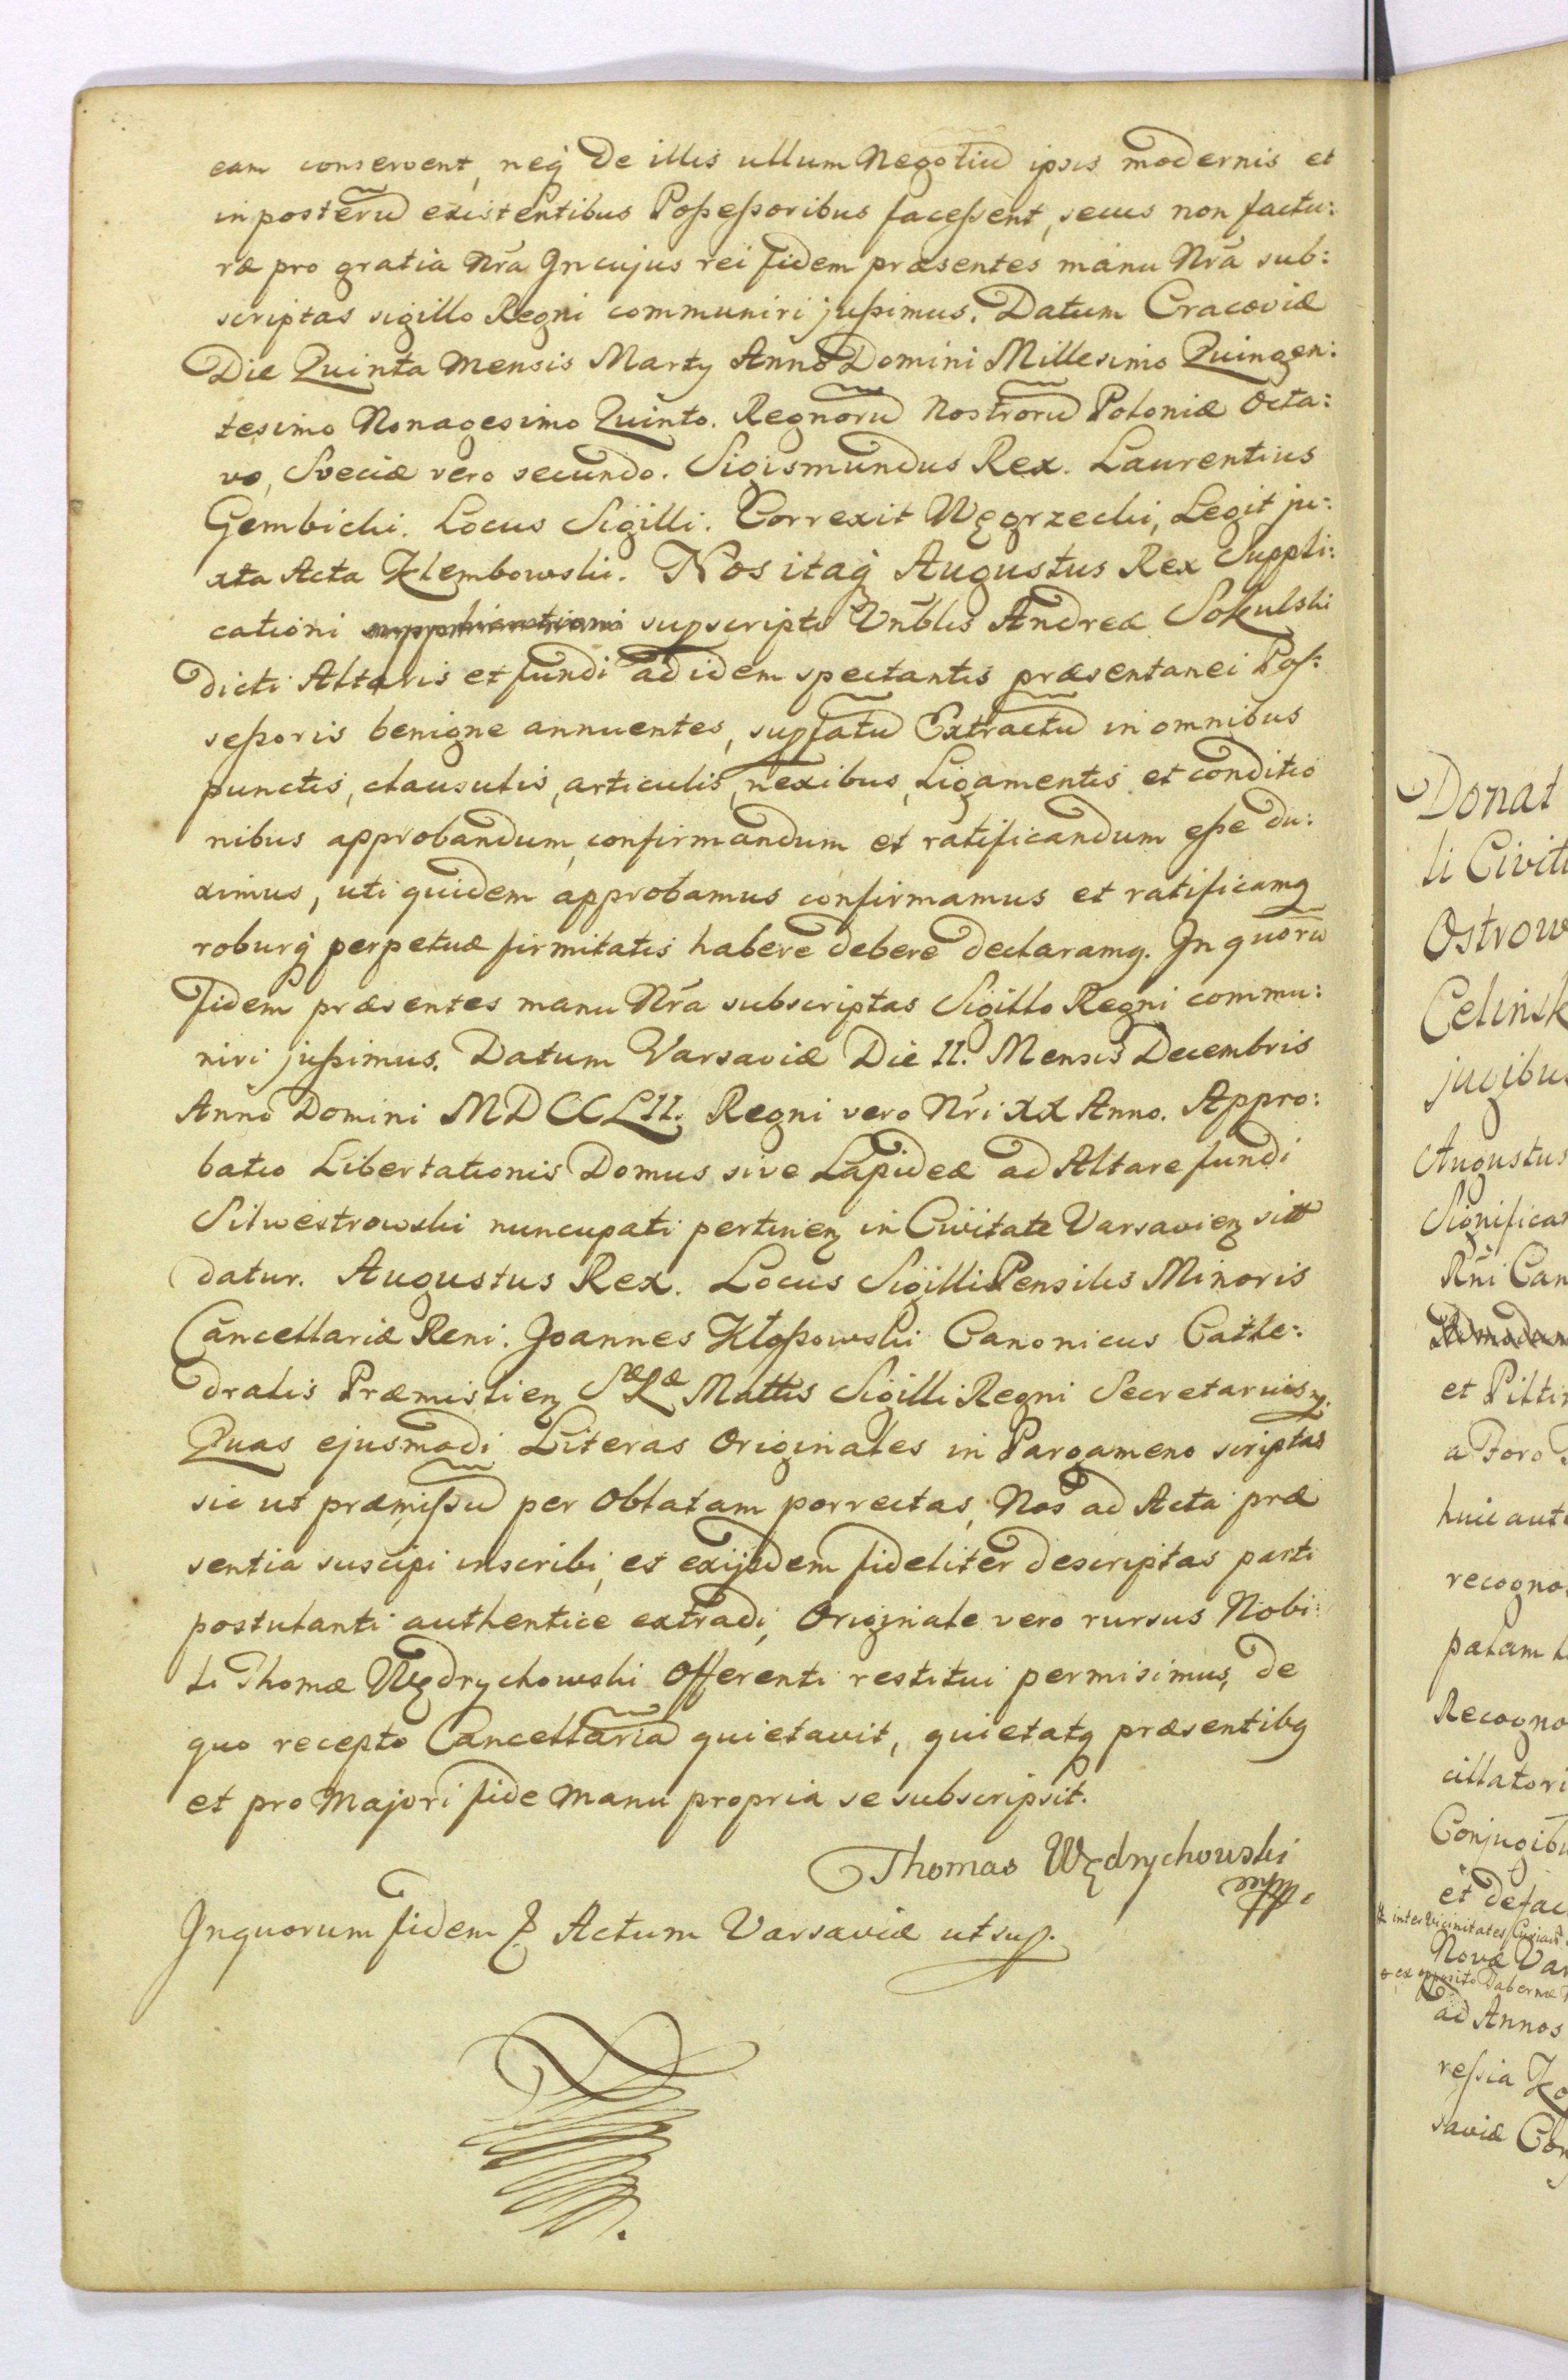 eam conservent, neq̃ de illis ullum Negotiũ ipsis modernis et
in posterũ existentibus Poßeßoribus faceßent, secus non factu:
ræ pro gratia Nr̃a In cujus rei fidem præsentes manu Nr̃a sub:
scriptas sigillo Regni communiri jußimus. Datum Cracoviæ
Die Quinta Mensis Martij Anno Domini Millesimo Quingen:
tesimo Nonagesimo Quinto. Regnorũ Nostrorũ Poloniæ Octa:
vo, Sveciæ vero secundo. Sigismundus Rex. Laurentius
Gembicki. Locus Sigilli. Correxit Węgrzecki, Legit ju:
xta Acta Klembowski. Nos itaq̃ Augustus Rex Suppli:
cationi supscripti Vnb̃lis Andreæ Sokulski
dicti Altaris et fundi ad idem spectantis præsentanei Pos:
seßoris benigne annuentes, supfatũ Extractũ in omnibus
punctis, clausulis, articulis, nexibus, Ligamentis et conditio
nibus approbandum, confirmandum et ratificandum eße du:
ximus, uti quidem approbamus confirmamus et ratificamq
roburq̃ perpetuæ firmitatis habere debere declaramq. In quorũ
Fidem præsentes manu Nr̃a subscriptas Sigillo Regni commu:
niri jußimus. Datum Varsaviæ Die 11. Mensis Decembris
Anno Domini MDCCLII. Regni vero Nr̃i XX Anno. Appro:
batio Libertationis Domus sive Lapideæ ad Altare fundi
Silwestrowski nuncupati pertinen in Civitate Varsavien sitt
datur. Augustus Rex. Locus Sigilli Pensilis Minoris
Cancellariæ Regni. Joannes Kłoßowski Canonicus Cathe:
dralis Præmislien SæRæ Mattis Sigilli Regni Secretarius mp.
Quas ejusmodi Literas Originales in Pargameno scriptas
sic ut præmißũ per Oblatam porrectas, Nos ad Acta præ
sentia suscipi inscribi, et exijsdem fideliter descriptas parti
postulanti authentice extradi, Originale vero rursus Nobi:
li Thomæ Wędrychowski Offerenti restitui permisimus, de
quo recepto Cancellariã quietavit, quietatq præsentibq
et pro Majori fide Manu propria se subscripsit.
Thomas Wędrychowski
mpp.
In quorum fidem & Actum Varsaviæ ut sup.
Donat
li Civit
Ostrow
Celinsk
jugibus
Augustus
Significa
Rñi Can
et Pilti
a Foro
huic aut
recogno
palam
Recogno
cillatori
Conjugibu
et defac
inter Vicinitates
Novæ Var
ex opposito Tabernæ
ad Annos
reßia
saviæ Con